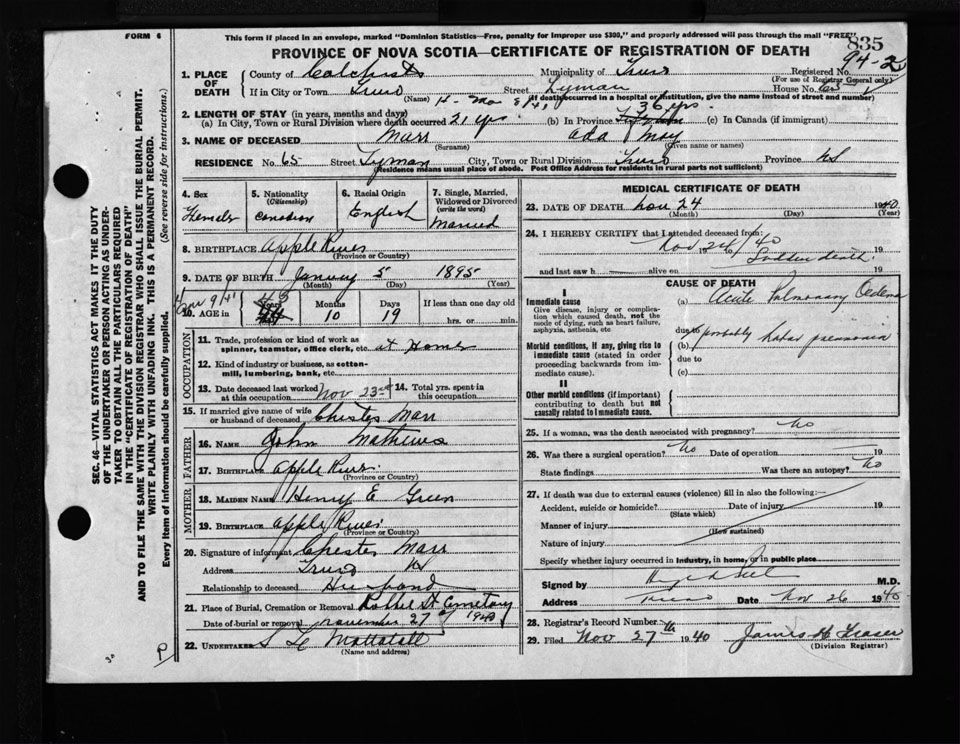 FORM 6
This form if placed in an envelope, marked "Dominion Statistics—Free, penalty for improper use $300," and properly addressed will pass through the mail "FREE"
835
PROVINCE OF NOVA SCOTIA—CERTIFICATE OF REGISTRATION OF DEATH
94-2
1. PLACE OF DEATH
County of Colchester Municipality of Truro Registered No.
(For use of Registrar General only)
If in City or Town Truro Street Lyman House No. 65
(Name) (If death occurred in a hospital or institution, give the name instead of street and number)
2. LENGTH OF STAY (in years, months and days) 36 yrs.
(a) In City, Town or Rural Division where death occurred 21 yrs (b) In Province (c) In Canada (if immigrant)
3. NAME OF DECEASED Marr Ada May
(Surname) (Given name or names)
RESIDENCE No. 65 Street Lyman City, Town or Rural Division Truro Province NS
(Residence means usual place of abode. Post Office Address for residents in rural parts not sufficient)
SEC. 46—VITAL STATISTICS ACT MAKES IT THE DUTY
OF THE UNDERTAKER OR PERSON ACTING AS UNDER-
TAKER TO OBTAIN ALL THE PARTICULARS REQUIRED
IN THE "CERTIFICATE OF REGISTRATION OF DEATH"
AND TO FILE THE SAME WITH THE DIVISION REGISTRAR WHO SHALL ISSUE THE BURIAL PERMIT.
WRITE PLAINLY WITH UNFADING INK. THIS IS A PERMANENT RECORD.
Every item of information should be carefully supplied. (See reverse side for instructions.)
4. Sex
Female
5. Nationality
(Citizenship)
Canadian
6. Racial Origin
English
7. Single, Married,
Widowed or Divorced
(write the word)
Married
8. BIRTHPLACE Apple River
(Province or Country)
9. DATE OF BIRTH January 5 1895
(Month) (Day) (Year)
10. AGE in
Years
Months
10
Days
19
If less than one day old
hrs. or min.
OCCUPATION
11. Trade, profession or kind of work as
spinner, teamster, office clerk, etc. at Home
12. Kind of industry or business, as cotton-
mill, lumbering, bank, etc.
13. Date deceased last worked
at this occupation Nov 23rd
14. Total yrs. spent in
this occupation
15. If married give name of wife
or husband of deceased Chester Marr
FATHER
16. NAME John Mathews
17. BIRTHPLACE Apple River
(Province or Country)
MOTHER
18. MAIDEN NAME Henry E Green
19. BIRTHPLACE Apple River
(Province or Country)
20. Signature of informant Chester Marr
Address Truro NS
Relationship to deceased Husband
21. Place of Burial, Cremation or Removal Robie St Cemetary
Date of burial or removal November 27 1940
22. UNDERTAKER Mattatall
(Name and address)
MEDICAL CERTIFICATE OF DEATH
23. DATE OF DEATH Nov 24 1940
(Month) (Day) (Year)
24. I HEREBY CERTIFY that I attended deceased from:
Nov 24/40 19
Sudden death
and last saw h alive on 19
CAUSE OF DEATH
I
Immediate cause
Give disease, injury or complica-
tion which caused death, not the
mode of dying, such as heart failure,
asphyxia, asthenia, etc
(a) Acute Pulmonary Oedema
due to
Morbid conditions, if any, giving rise to
immediate cause (stated in order
proceeding backwards from im-
mediate cause).
(b) probably lobar pneumonia
due to
(c)
II
Other morbid conditions (if important)
contributing to death but not
causally related to immediate cause.
25. If a woman, was the death associated with pregnancy? No
26. Was there a surgical operation? No Date of operation 19
State findings Was there an autopsy? No
27. If death was due to external causes (violence) fill in also the following:—
Accident, suicide or homicide? Date of injury 19
(State which)
Manner of injury
(How sustained)
Nature of injury
Specify whether injury occurred in industry, in home, or in public place
Signed by M.D.
Address Truro Date Nov 26 1940
28. Registrar's Record Number
29. Filed Nov 27th 1940 James H Fraser
(Division Registrar)
P